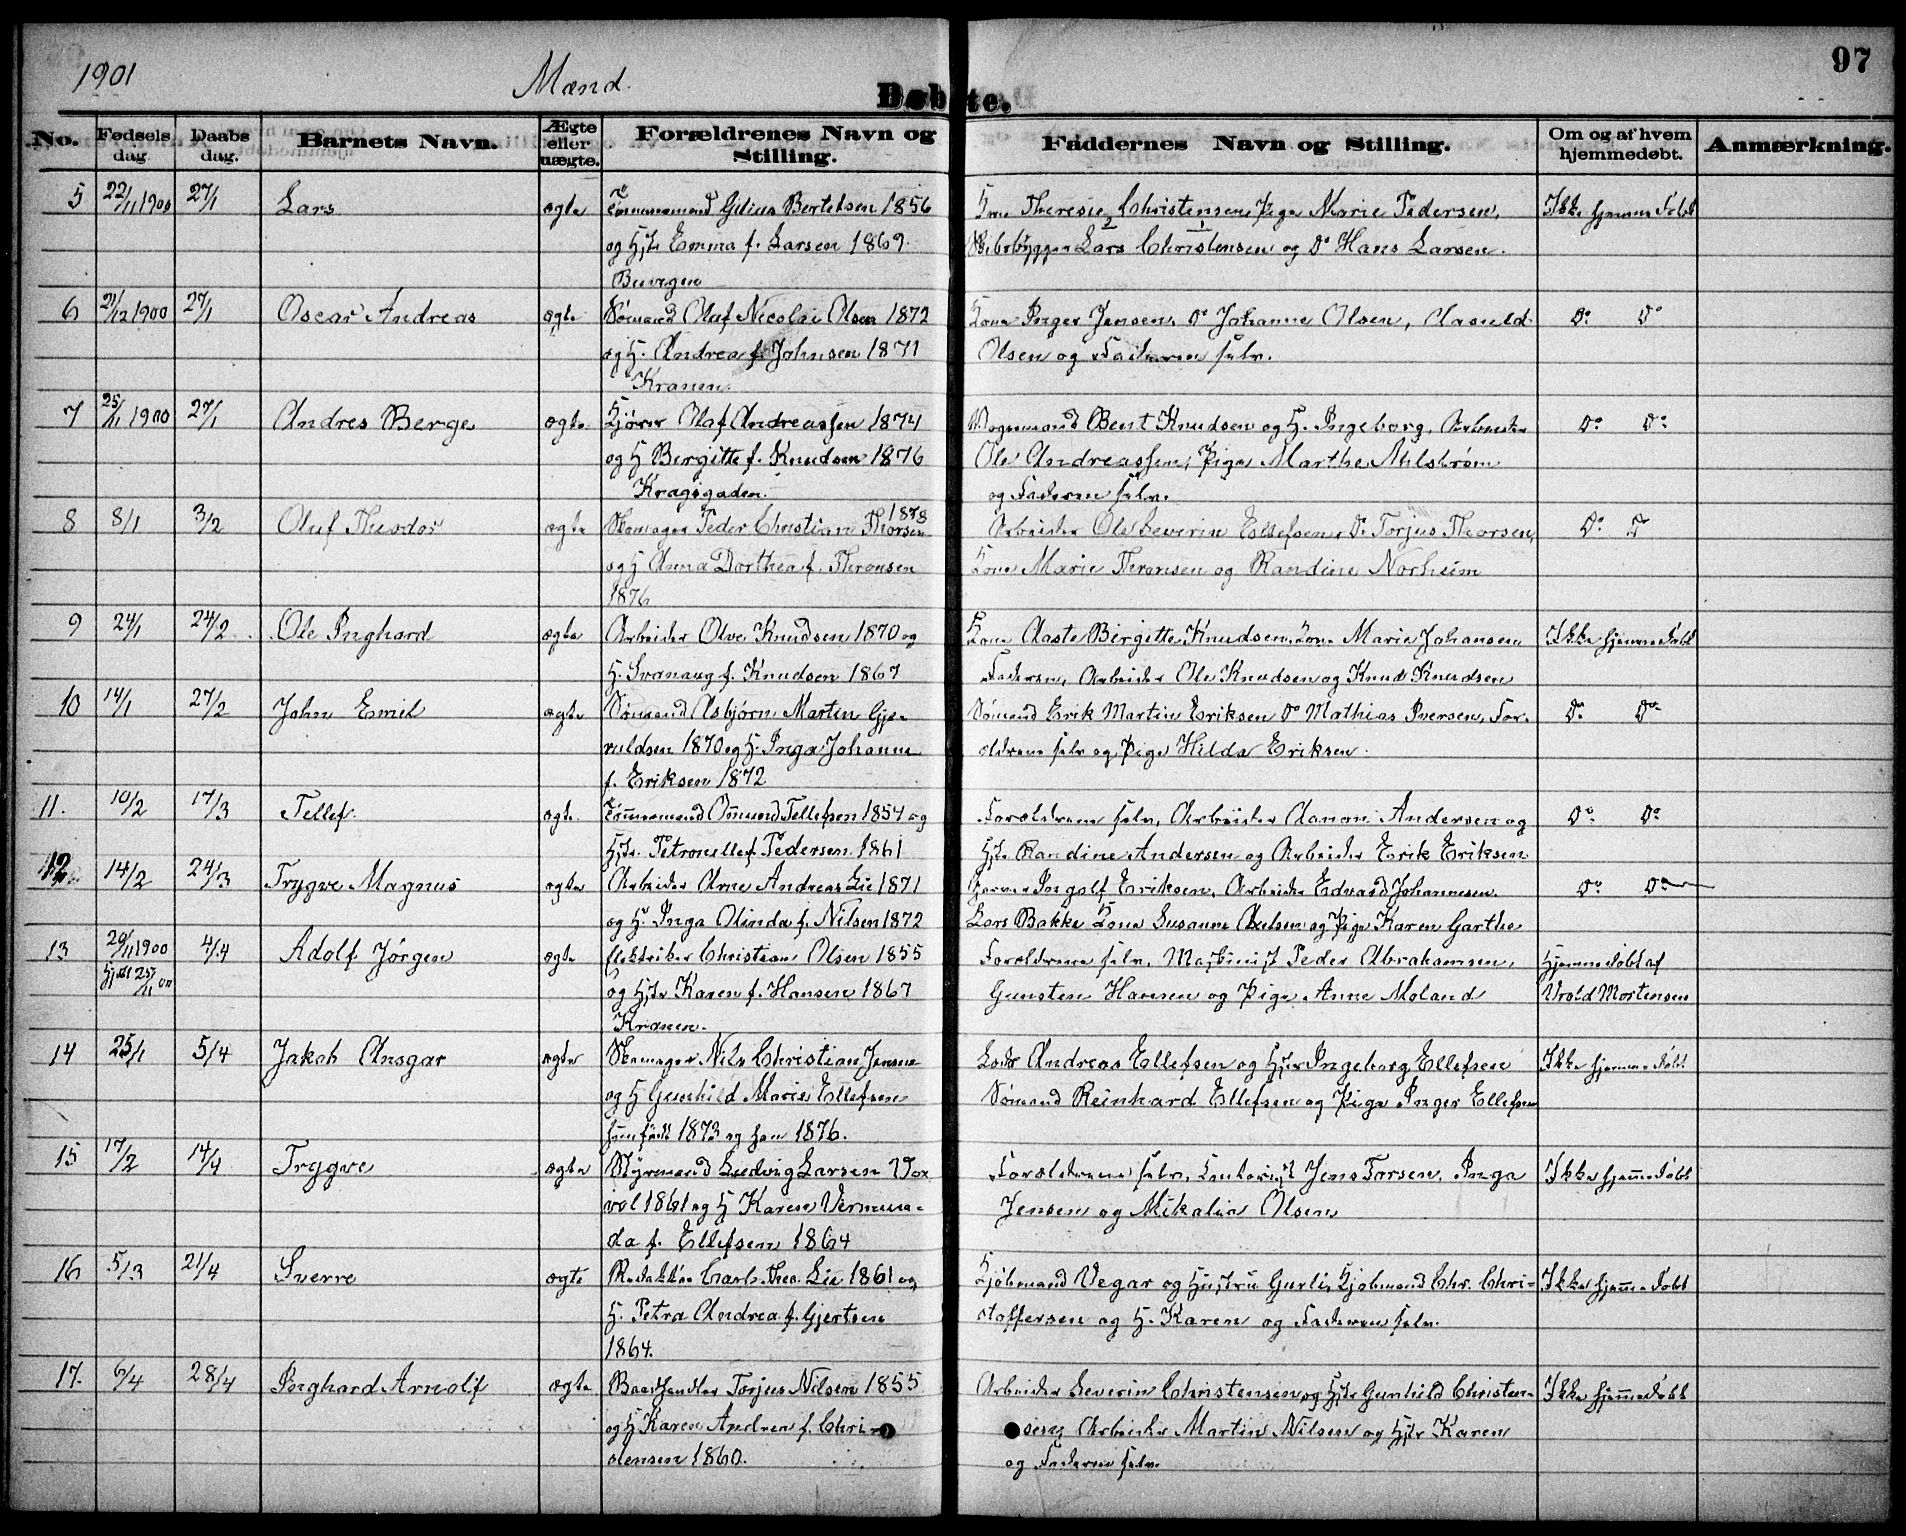 97
1901 Mænd.
Døbte.
No. Fødsels dag. Daabs dag. Barnets Navn. Ægte eller uægte. Forældrenes Navn og Stilling. Faddernes Navn og Stilling. Om og af hvem hjemmedøbt. Anmærkning.
5 22/11 1900 27/1 Lars ægte Tømmermand Gelius Bertelsen 1856 Kone Theresie Christensen, Pige Marie Pedersen, Ikke hjemmedøbt
og Hstr Emma f. Larsen 1869. Lars Christensen og Do Hans Larsen.
6 21/12 1900 27/1 Oscar Andreas ægte Sømand Oluf Nicolai Olsen 1872 Kone Inger Jensen, Do Johanne Olsen, Olsen og Faderen selv. Do Do
og H. Andrea f. Johnsen 1871
Kranen.
7 25/11 1900 27/1 Andres Berge ægte Kjører Olaf Andreassen 1874 Vognmand Bent Knudsen og H. Ingeborg, Arbeider Do Do
og H Bergitte f. Knudsen 1876 Ole Andreassen, Pige Marthe
Kragsgaden. og Faderen selv.
8 8/1 3/2 Oluf Theodor ægte Skomager Peder Christian Thorsen 1878 Arbeider Ole Severin Ellefsen, Do Torjus Thorsen, Do
og H Anna Dorthea f. Thronsen Kone Marie Thronsen og Randine Norheim
1876
9 24/1 24/2 Ole Inghard ægte Arbeider Olve Knudsen 1870 og Kone Aaste Birgitte Knudsen, Kone Marie Johansen Ikke hjemmedøbt
H. Svanaug f. Knudsen 1867 Faderen, Arbeider Ole Knudsen og Knud Knudsen
10 14/1 27/2 John Emil ægte Sømand Asbjørn Martin Gje- Sømand Erik Martin Eriksen Do Mathias Iversen, For- Do Do
ruldsen 1870 og H. Inga Johanne ældrene selv og Pige Hilda Eriksen.
f. Eriksen 1872
11. 10/2 17/3 Tellef. ægte Tømmermand Omund Tellefsen 1854 og Forældrene selv, Arbeider Aanon Andersen og Do Do
Hstr. Petronelle f. Pedersen 1861 Hstr Randine Andersen og Arbeider Erik Eriksen
12 14/2 24/3 Trygve Magnus ægte Arbeider Arne Andreas Lie 1871 Ingolf Eriksen, Arbeider Edvard Johannesen, Do Do
og H. Inga Olinda f. Nilsen 1872 Lars Bakke, Kone Susanne Axelsen og Pige Karen Garthe
13 20/11 1900 4/4 Adolf Jørgen ægte Christian Olsen 1855 Forældrene selv, Maskinist Peder Abrahamsen, Hjemmedøbt af
25/11 00 og Hstr Karen f. Hansen 1867 Gunsten Hansen og Pige Anne Moland Vrold Mortensen
Kranen.
14 25/1 5/4 Jakob Ansgar ægte Skomager Nils Christian Jensen Lods Andreas Ellefsen og Hstr Ingeborg Ellefsen Ikke hjemmedøbt
og H Gunhild Marie Ellefsen Sømand Reinhard Ellefsen og Pige Inger Ellefsen
hun født 1873 og han 1876.
15 17/2 14/4 Trygve ægte Styrmand Ludvig Larsen Vox- Forældrene selv, Kontorist Jens Torsen, Inga Ikke hjemmedøbt
vol 1861 og H Karen Vermun- Jensen og Mikalia Olsen
da f. Ellefsen 1864
16 5/3 21/4 Sverre ægte Redaktør Carl Thea. Lie 1861 og Kjøbmand Vegar og Hustru Gurli, Kjøbmand Chr. Chri- Ikke hjemmedøbt
H. Petra Andrea f. Gjertsen stoffersen og H. Karen og Faderen selv.
1864.
17. 6/4 28/4 Inghard Arnolf ægte Torjus Nilsen 1855 Arbeider Severin Christensen og Hstr Gunhild Christen- Ikke hjemmedøbt
og H Karen Andrea f. Chri- sen, Arbeider Martin Nilsen og Hstr Karen
stensen 1860. og Faderen selv.